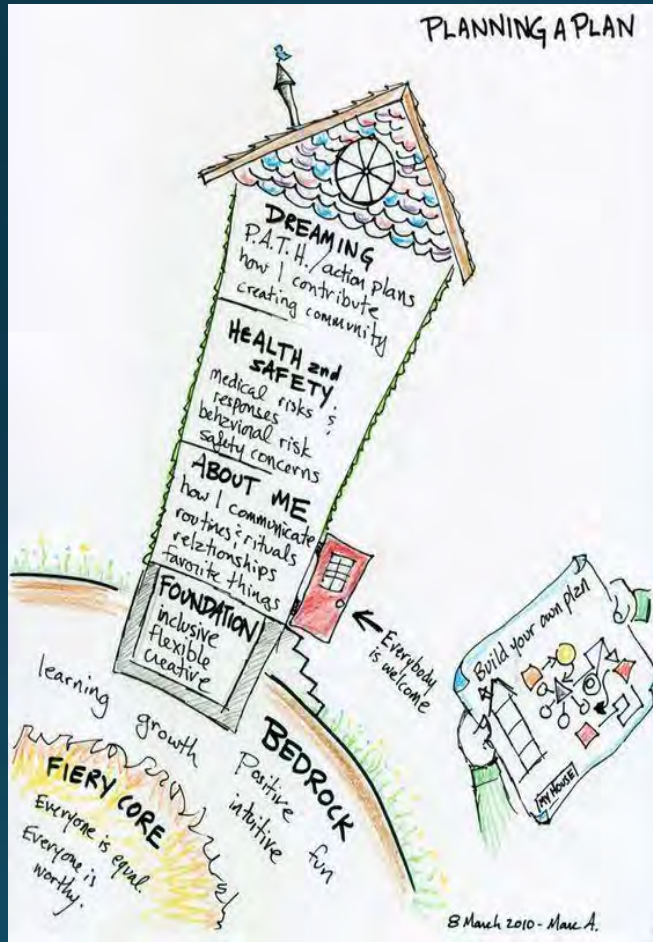 PLANNING A PLAN
DREAMING
P.A.T.H./action plans
how I contribute
creating community
HEALTH and
SAFETY
medical risks &
responses
behavioral risk
safety concerns
ABOUT ME
how I communicate
routines & rituals
relationships
favorite things
FOUNDATION
inclusive
flexible
creative
Everybody
is welcome
Build your own plan
MY HOUSE
learning
growth
BEDROCK
Positive
intuitive
fun
FIERY CORE
Everyone is equal.
Everyone is
worthy.
8 March 2010 - Marc A.